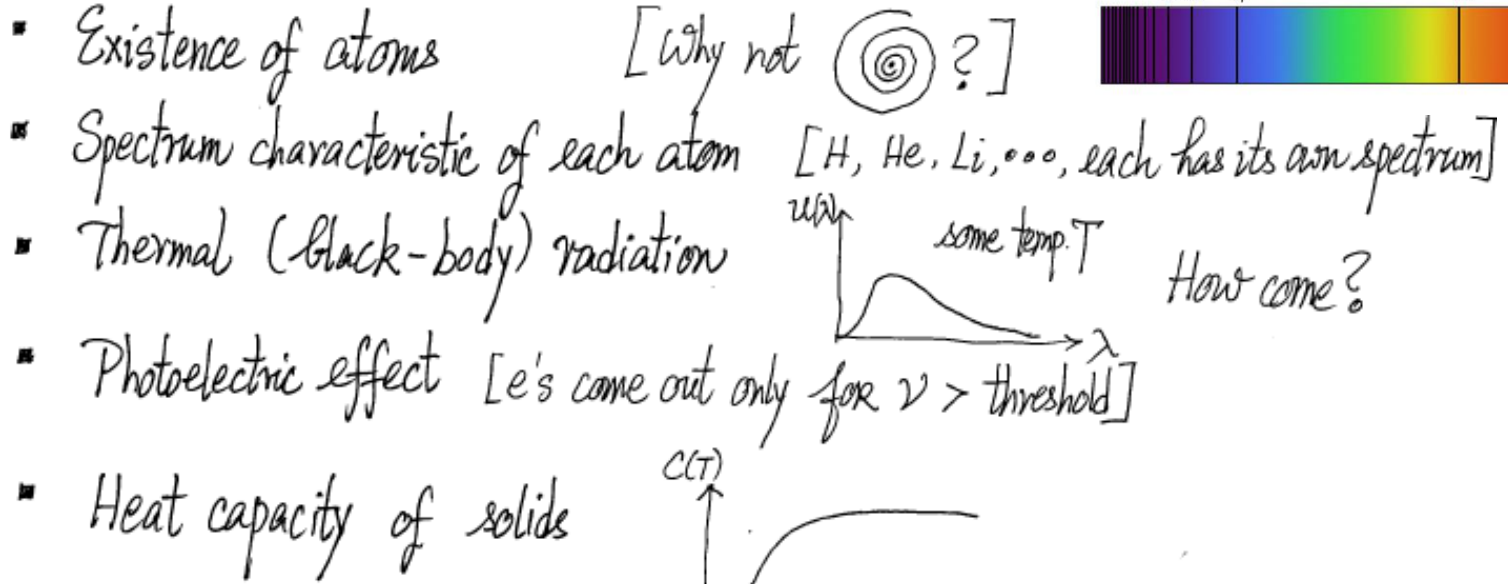 Existence of atoms [Why not ?]
Spectrum characteristic of each atom [H, He, Li, ..., each has its own spectrum]
Thermal (black-body) radiation u(λ) some temp. T How come?
λ
Photoelectric effect [e's come out only for ν > threshold]
C(T)
Heat capacity of solids